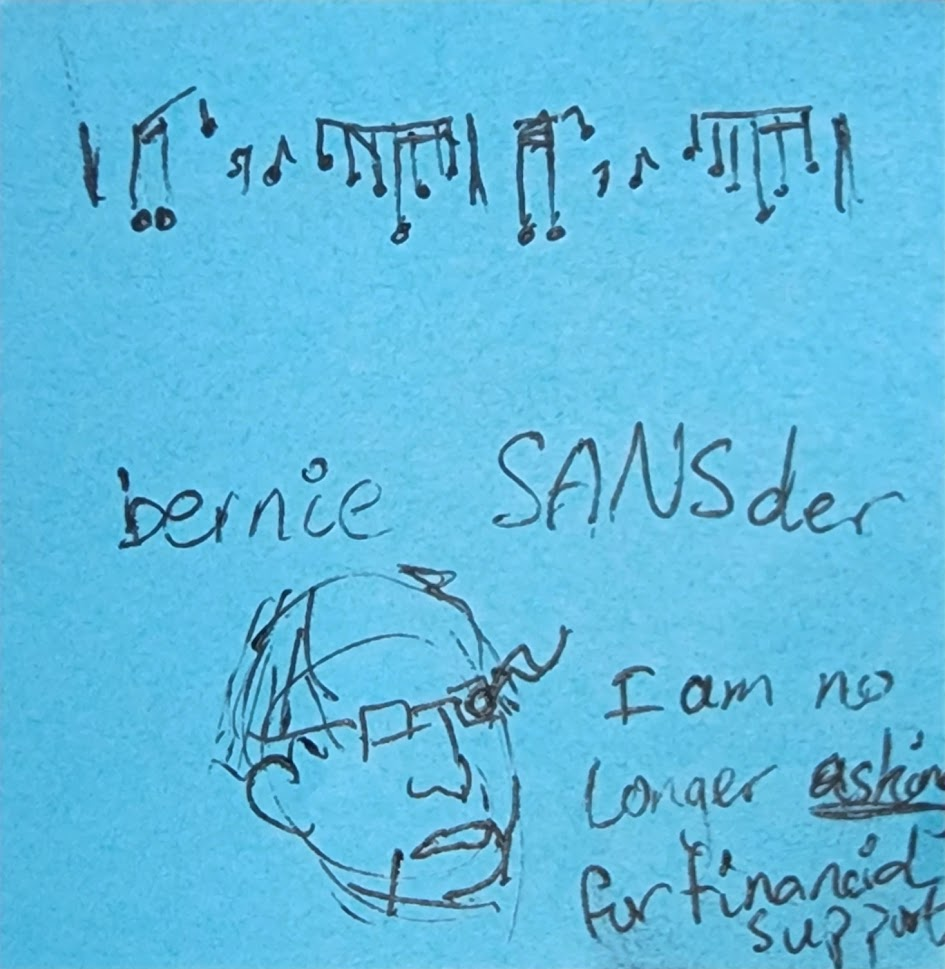 bernie SANSder
I am no
longer askin
for financial
support